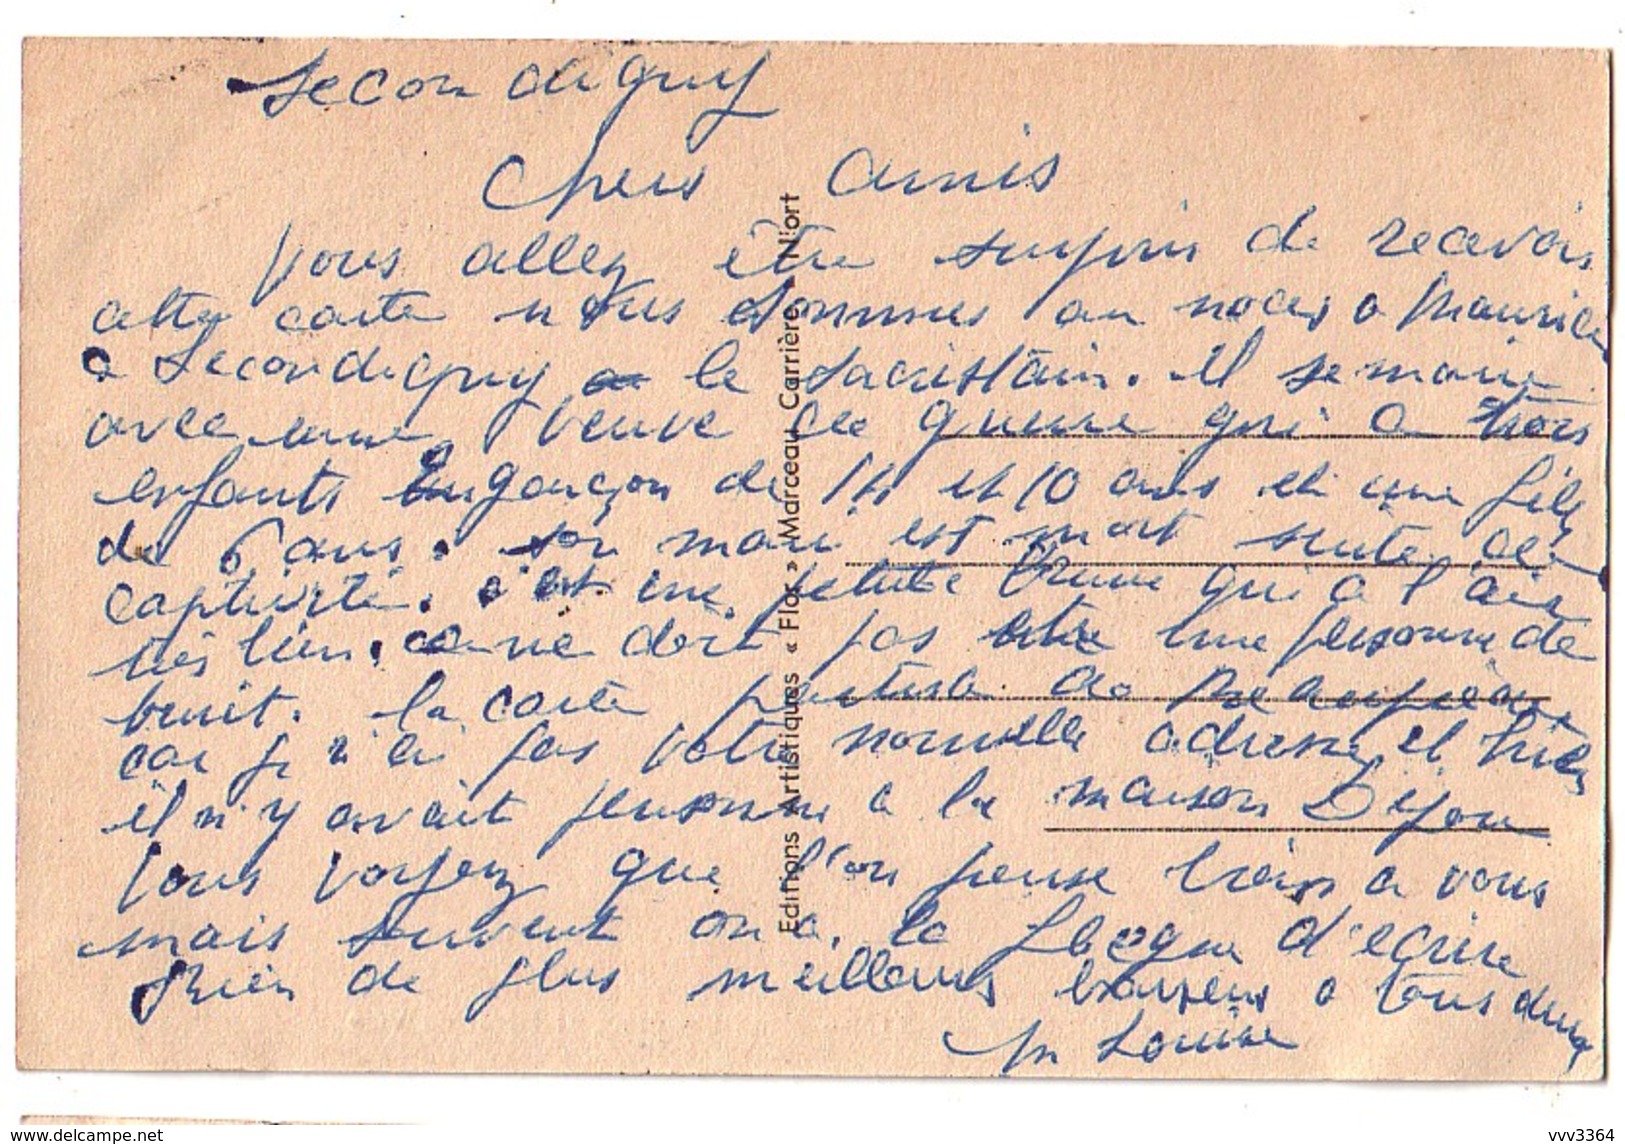 Secondigny
Chers amis
Vous allez être surpris de recevoir
cette carte nous sommes au noces a Maurice
a Secondigny le sacristain. Il se marie
avec une veuve de guerre qui a trois
enfants garçon de 14 et 10 ans et une fille
de 6 ans. son mari est mort suite de
captivité. c'est une petite brune qui a l'air
très bien. ce ne doit pas être une personne de
bruit. la carte partira de
car je n'ai pas votre nouvelle adresse et hier
il n'y avait personne a la maison Dijou
Vous voyez que l'on pense bien a vous
mais souvent on a la flegme d'ecrire
Rien de plus meilleurs baisers a tous deux
M Louise
Editions Artistiques « Flor » Marceau Carrière, Niort
delcampe.net
vvv3364